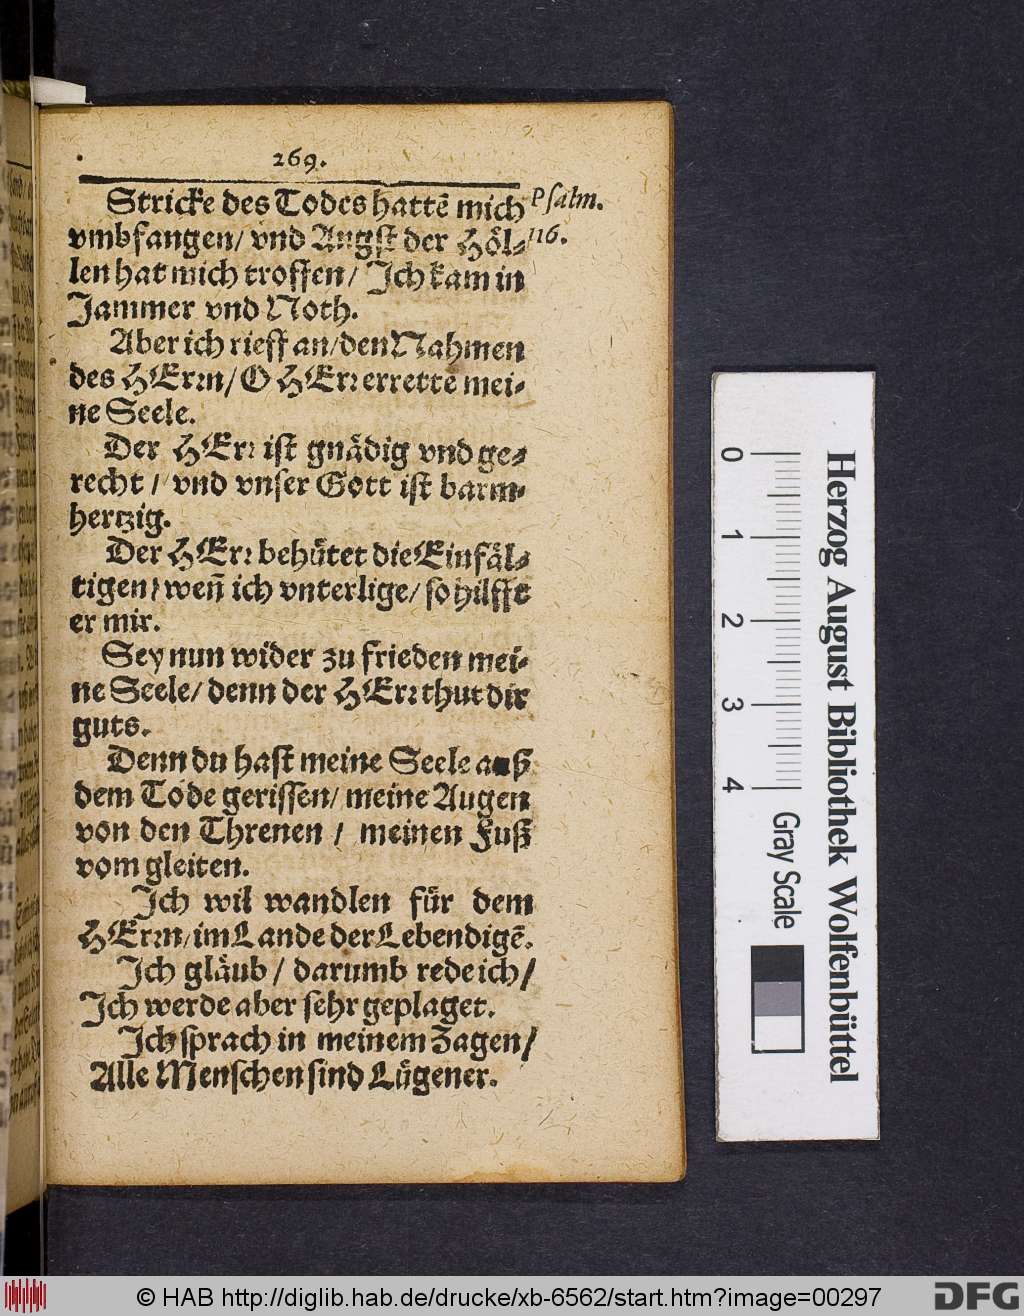 269.
Stricke des Todes hattẽ mich
Psalm.
vmbfangen/ vnd Angst der Höl⸗
116.
len hat mich troffen/ Ich kam in
Jammer vnd Noth.
Aber ich rieff an/ den Nahmen
des HErꝛn/ O HErꝛ errette mei⸗
ne Seele.
Der HErꝛ ist gnädig vnd ge⸗
recht/ vnd vnser Gott ist barm⸗
hertzig.
Der HErꝛ behütet die Einfäl⸗
tigen/ weñ ich vnterlige/ so hilfft
er mir.
Sey nun wider zu frieden mei⸗
ne Seele/ denn der HErꝛ thut dir
guts.
Denn du hast meine Seele auß
dem Tode gerissen/ meine Augen
von den Threnen/ meinen Fuß
vom gleiten.
Ich wil wandlen für dem
HErꝛn/ im Lande der Lebendigẽ.
Ich gläub/ darumb rede ich/
Ich werde aber sehr geplaget.
Ich sprach in meinem Zagen/
Alle Menschen sind Lügener.
0 1 2 3 4
Gray Scale
Herzog August Bibliothek Wolfenbüttel
© HAB http://diglib.hab.de/drucke/xb-6562/start.htm?image=00297
DFG